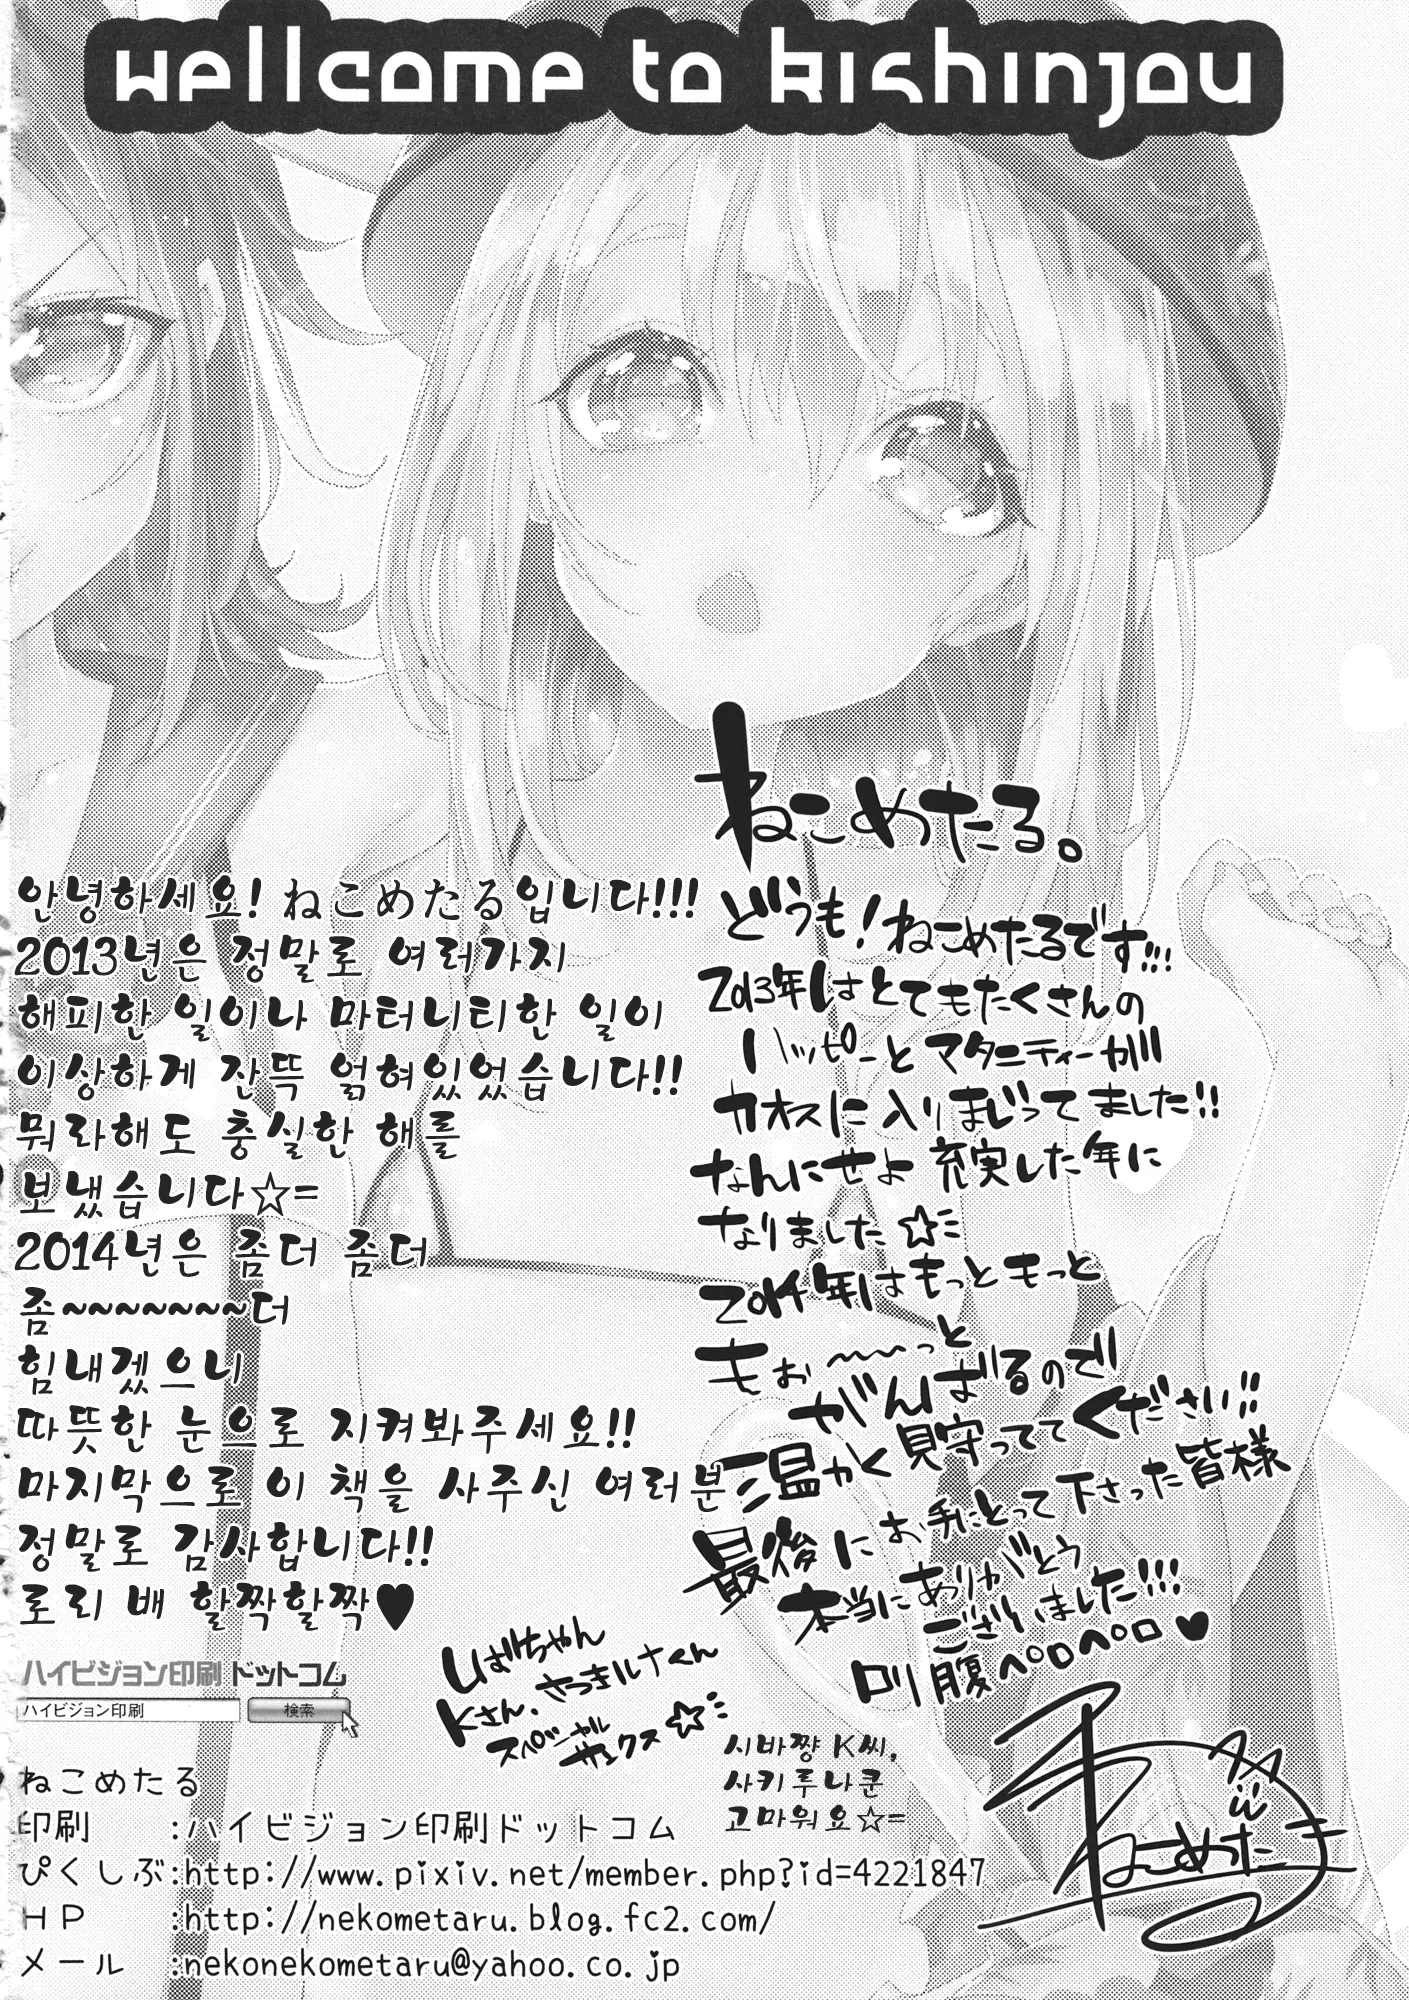 wellcome to kishinjou
ねこめたる。
どうも!ねこめたるです!!!
2013年はとてもたくさんの
ハッピーとマタニティーが
カオスに入りまじってました!!
なんにせよ充実した年に
なりました☆=
2014年はもっともっと
もぉ~~~っと
がんばるので
温かく見守っててください!!
最後にお手にとって下さった皆様
本当にありがとう
ございました!!!
ロリ腹ペロペロ♥
안녕하세요! ねこめたる입니다!!!
2013년은 정말로 여러가지
해피한 일이나 마터니티한 일이
이상하게 잔뜩 얽혀있었습니다!!
뭐라해도 충실한 해를
보냈습니다☆=
2014년은 좀더 좀더
좀~~~~~~~더
힘내겠으니
따뜻한 눈으로 지켜봐주세요!!
마지막으로 이 책을 사주신 여러분
정말로 감사합니다!!
로리 배 할짝할짝♥
ハイビジョン印刷ドットコム
ハイビジョン印刷 検索
しばちゃん
Kさん、さつきルナくん
スペシャル
サンクス☆=
시바쨩 K씨,
사키루나쿤
고마워요☆=
ねこめたる
印刷 :ハイビジョン印刷ドットコム
ぴくしぶ:http://www.pixiv.net/member.php?id=4221847
HP :http://nekometaru.blog.fc2.com/
メール :nekonekometaru@yahoo.co.jp